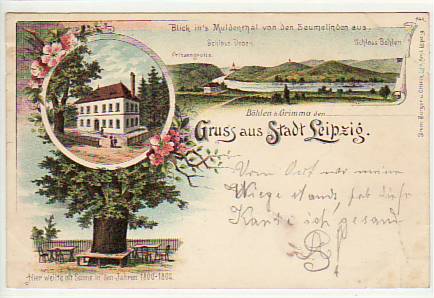 Blick in's Muldenthal von den Seumelinden aus.
Schloss Döben
Schloss Böhlen
Prinzengrotte
Böhlen b. Grimma den
Gruss aus Stadt Leipzig.
Vom Ort wo meine
Wiege stand, hab ihr
Karte ich gesandt
Hier weilte oft Seume in den Jahren 1800-1802.